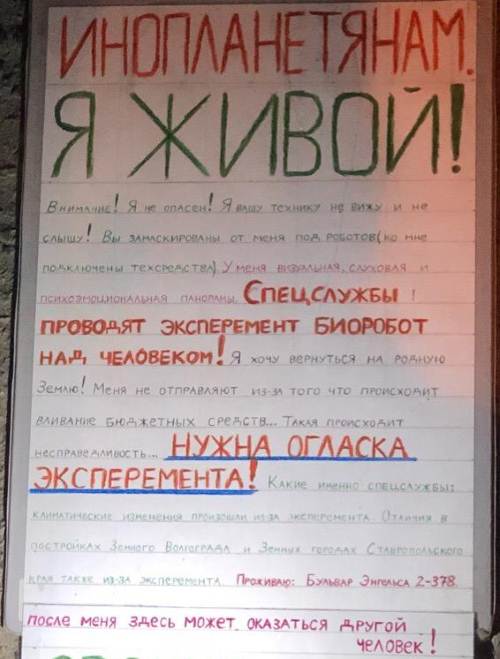 ИНОПЛАНЕТЯНАМ.
Я ЖИВОЙ!
Внимание! Я не опасен! Я вашу технику не вижу и не
слышу! Вы замаскированы от меня под роботов(ко мне
подключены техсредства). У меня визуальная, слуховая и
психоэмоциональная панорамы. СПЕЦСЛУЖБЫ !
ПРОВОДЯТ ЭКСПЕРЕМЕНТ БИОРОБОТ
НАД ЧЕЛОВЕКОМ! Я хочу вернуться на родную
Землю! Меня не отправляют из-за того что происходит
вливание бюджетных средств... Такая происходит
несправедливость... НУЖНА ОГЛАСКА
ЭКСПЕРЕМЕНТА! Какие именно спецслужбы:
климатические изменения произошли из-за эксперемента. Отличия в
постройках Земного Волгограда и Земных городах Ставропольского
края также из-за эксперемента. Проживаю: Бульвар Энгельса 2-378.
после меня здесь может оказаться другой
человек!